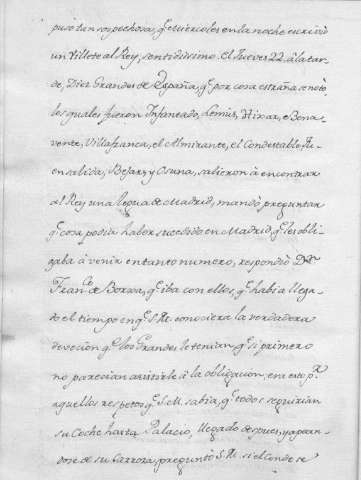 puso tan sospechosa, q.e miercoles en la noche escrivió
un Villete al Rey, sentidissimo. El Jueves 22. à la tar-
de, Diez Grandes de España, q.e por cosa estraña se notò
los quales fueron Infantado, Lemus, Hixar, e Bena-
vente, Villafranca, el Almirante, el Condestable, Fu-
ensalida, Bejar, y Osuna, salieron à encontrar
al Rey una legua de Madrid, mandò preguntar
q.e cosa podia haber sucedido en Madrid q.e les obli-
gaba à venir en tanto numero, respondiò D.n
Fran.co de Borxa, q.e iba con ellos, q.e habia llega-
do el tiempo en q.e S.M. conociera la verdadera
devocion q.e los Grandes le tenian, q.e si primero
no parecian asistirle à la obligacion, era por
aquellos respetos q.e S.M. sabia, q.e todos seguirian
su Coche hasta Palacio, llegado despues, y apean-
dose de su Carroza, preguntò S.M. si el Conde se